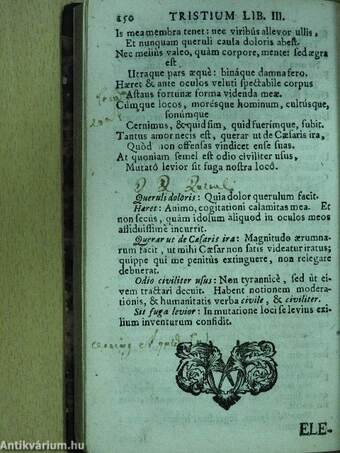 250 TRISTIUM LIB. III.
Is mea membra tenet: nec viribus allevor ullis,
Et nunquam queruli causa doloris abest.
Nec melius valeo, quàm corpore, mente: sed ægra
est
Utraque pars æquè: binâque damna fero.
Hæret & ante oculos veluti spectabile corpus
Astans fortunæ forma videnda meæ.
Cúmque locos, morésque hominum, cultúsque,
sonúmque
Cernimus, & quid sim, quid fuerímque, subit.
Tantus amor necis est, querar ut de Cæsaris ira,
Quòd non offensas vindicet ense suas.
At quoniam semel est odio civiliter usus,
Mutató levior sit fuga nostra locô.
Queruli doloris: Quia dolor querulum facit.
Hæret: Animo, cogitationi calamitas mea. Et
non secùs, quàm idolum aliquod in oculos meos
assiduissimè incurrit.
Querar ut de Cæsaris ira: Magnitudo ærumna-
rum facit, ut mihi Cæsar non satis videatur iratus;
quippe qui me penitùs extinguere, non relegare
debuerat.
Odio civiliter usus: Non tyrannicè, sed ùt ci-
vem tractari decuit. Habent notionem modera-
tionis, & humanitatis verba civile, & civiliter.
Sit fuga levior: In mutatione loci se levius exi-
lium inventurum confidit.
ELE-
Antikvárium.hu